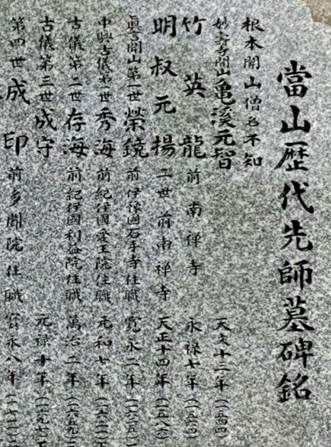 當山歴代先師墓碑銘
根本開山僧名不知
開山亀渓元智 天文十三年(一五四四)
竹英龍 前南禅寺 永禄七年(一五六四)
明叔元揚 二世前南禅寺 天正十四年(一五八六)
眞言開山第一世榮鏡 前伊豫國石手寺住職 寛永二年(一六二五)
中興古儀第一世秀海 前紀伊國愛王院住職 元和七年(一六二一)
古儀第二世存海 前紀伊國利益院住職 萬治二年(一六五九)
古儀第三世成守 元禄十年(一六九七)
第四世成印 前多聞院住職 寳永八年(一七一一)